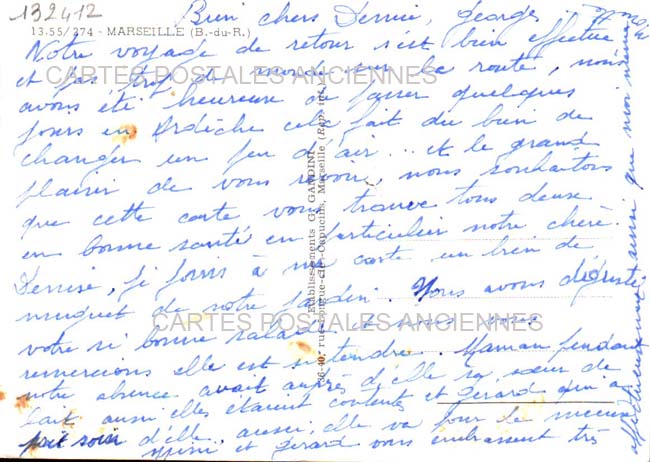 132412
13.55/274 - MARSEILLE (B.-du-R.)
Bien chers Denise, Georges
Notre voyage de retour s'est bien effectué
et pas trop de monde sur la route, nous
avons été heureuse de passer quelques
jours en Ardèche cela fait du bien de
changer un peu d'air... et le grand
plaisir de vous revoir, nous souhaitons
que cette carte vous trouve tous deux
en bonne santé en particulier notre chère
Denise, je joins à ma carte un brin de
muguet de notre jardin. Nous avons dégusté
votre si bonne salade et nous vous
remercions elle est si tendre. Maman pendant
notre absence avait auprès d'elle sa sœur de
lait aussi elles étaient contentes et Gérard qui a
pris soin d'elle aussi elle va pour le mieux
Mimi et Gérard vous embrassent très
affectueusement ainsi que moi même
CARTES POSTALES ANCIENNES
CARTES POSTALES ANCIENNES
Etablissements G. GANDINI
36-40, rue Longue-des-Capucins, Marseille (Rep) int.